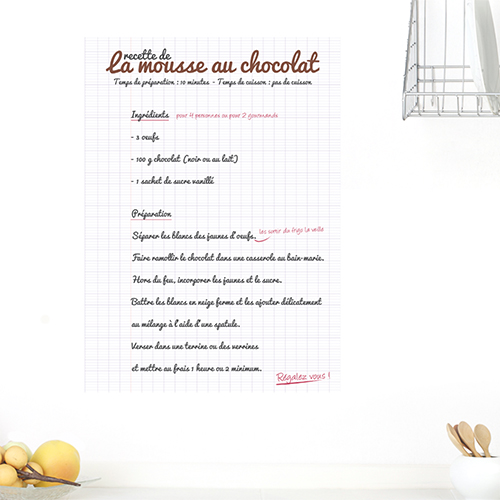 recette de
la mousse au chocolat
Temps de préparation : 10 minutes - Temps de cuisson : pas de cuisson
Ingrédients pour 4 personnes ou pour 2 gourmands
- 3 oeufs
- 100 g chocolat (noir ou au lait)
- 1 sachet de sucre vanillé
Préparation
Séparer les blancs des jaunes d'oeufs. les sortir du frigo la veille
Faire ramollir le chocolat dans une casserole au bain-marie.
Hors du feu, incorporer les jaunes et le sucre.
Battre les blancs en neige ferme et les ajouter délicatement
au mélange à l'aide d'une spatule.
Verser dans une terrine ou des verrines
et mettre au frais 1 heure ou 2 minimum.
Régalez vous !